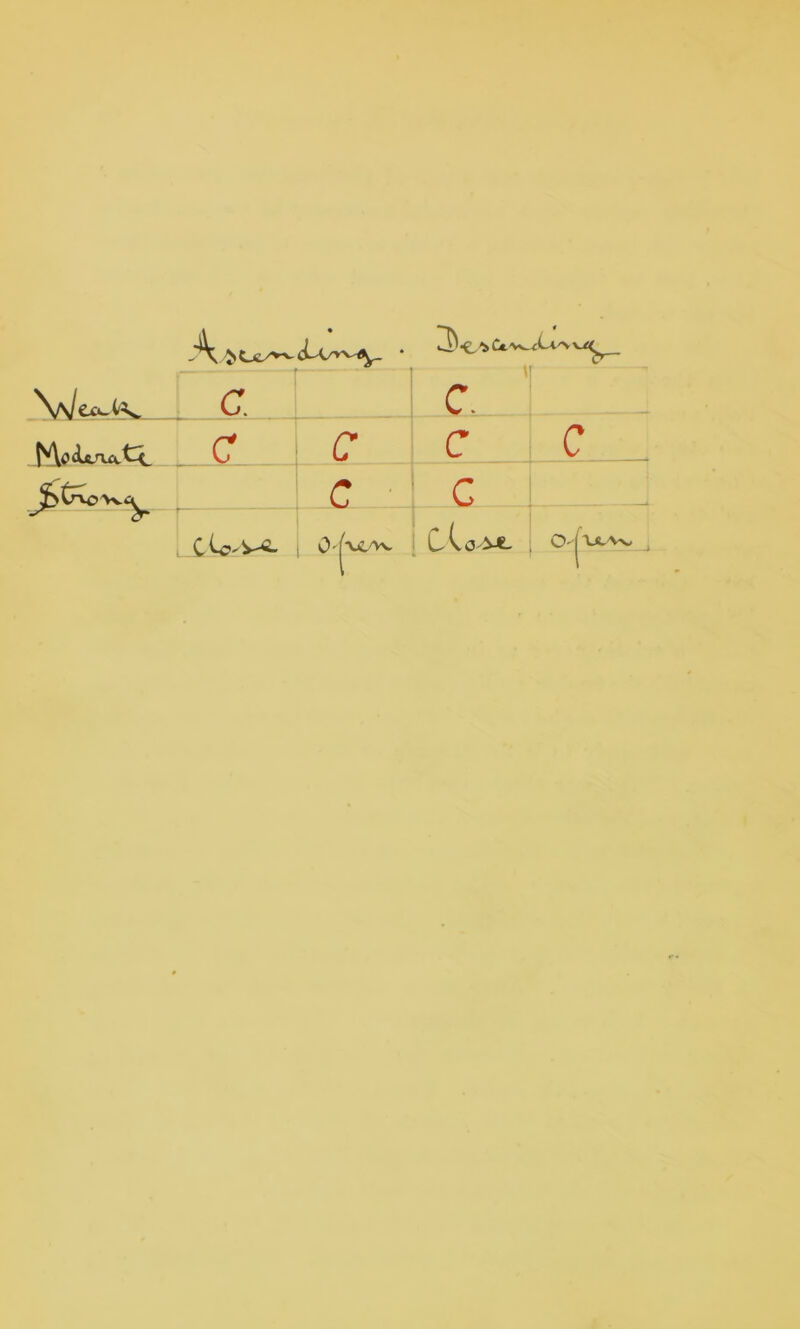 Ascending. Descending
Weak C. C.
Moderate C C C C
Strong C C
Close Open Close Open